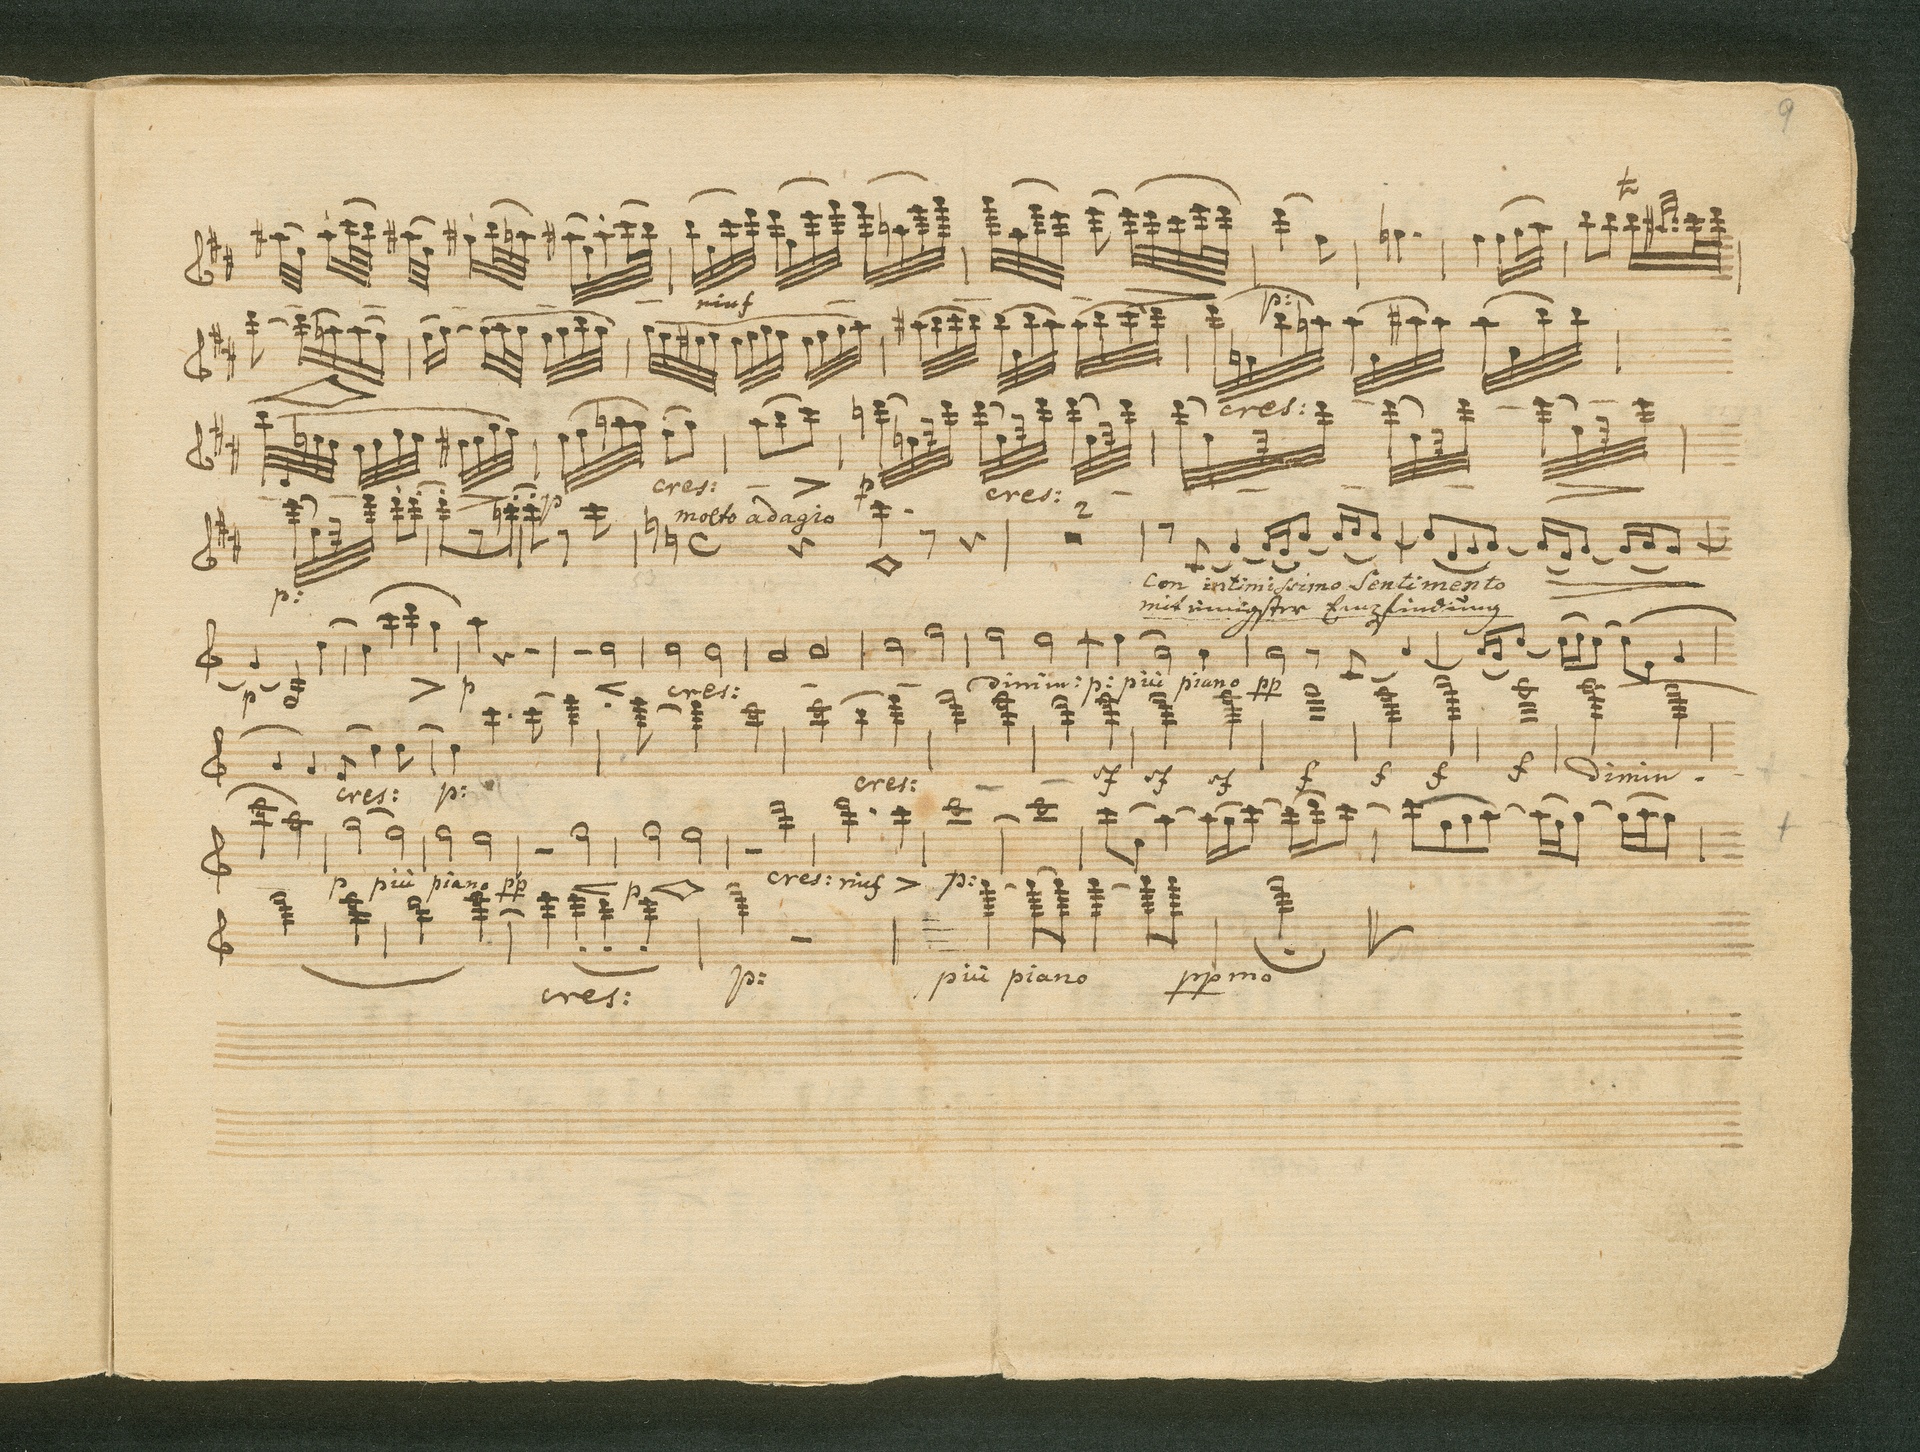 9
rinf
p:
cres:
cres: > p cres:
molto adagio 2
p: p
Con intimissimo Sentimento
mit innigster Empfindung
p > p < cres: dimin: p: più piano pp
cres: p: cres: sf sf sf f f f f dimin.
p più piano pp < p cres: rinf > p:
cres: p: più piano ppmo